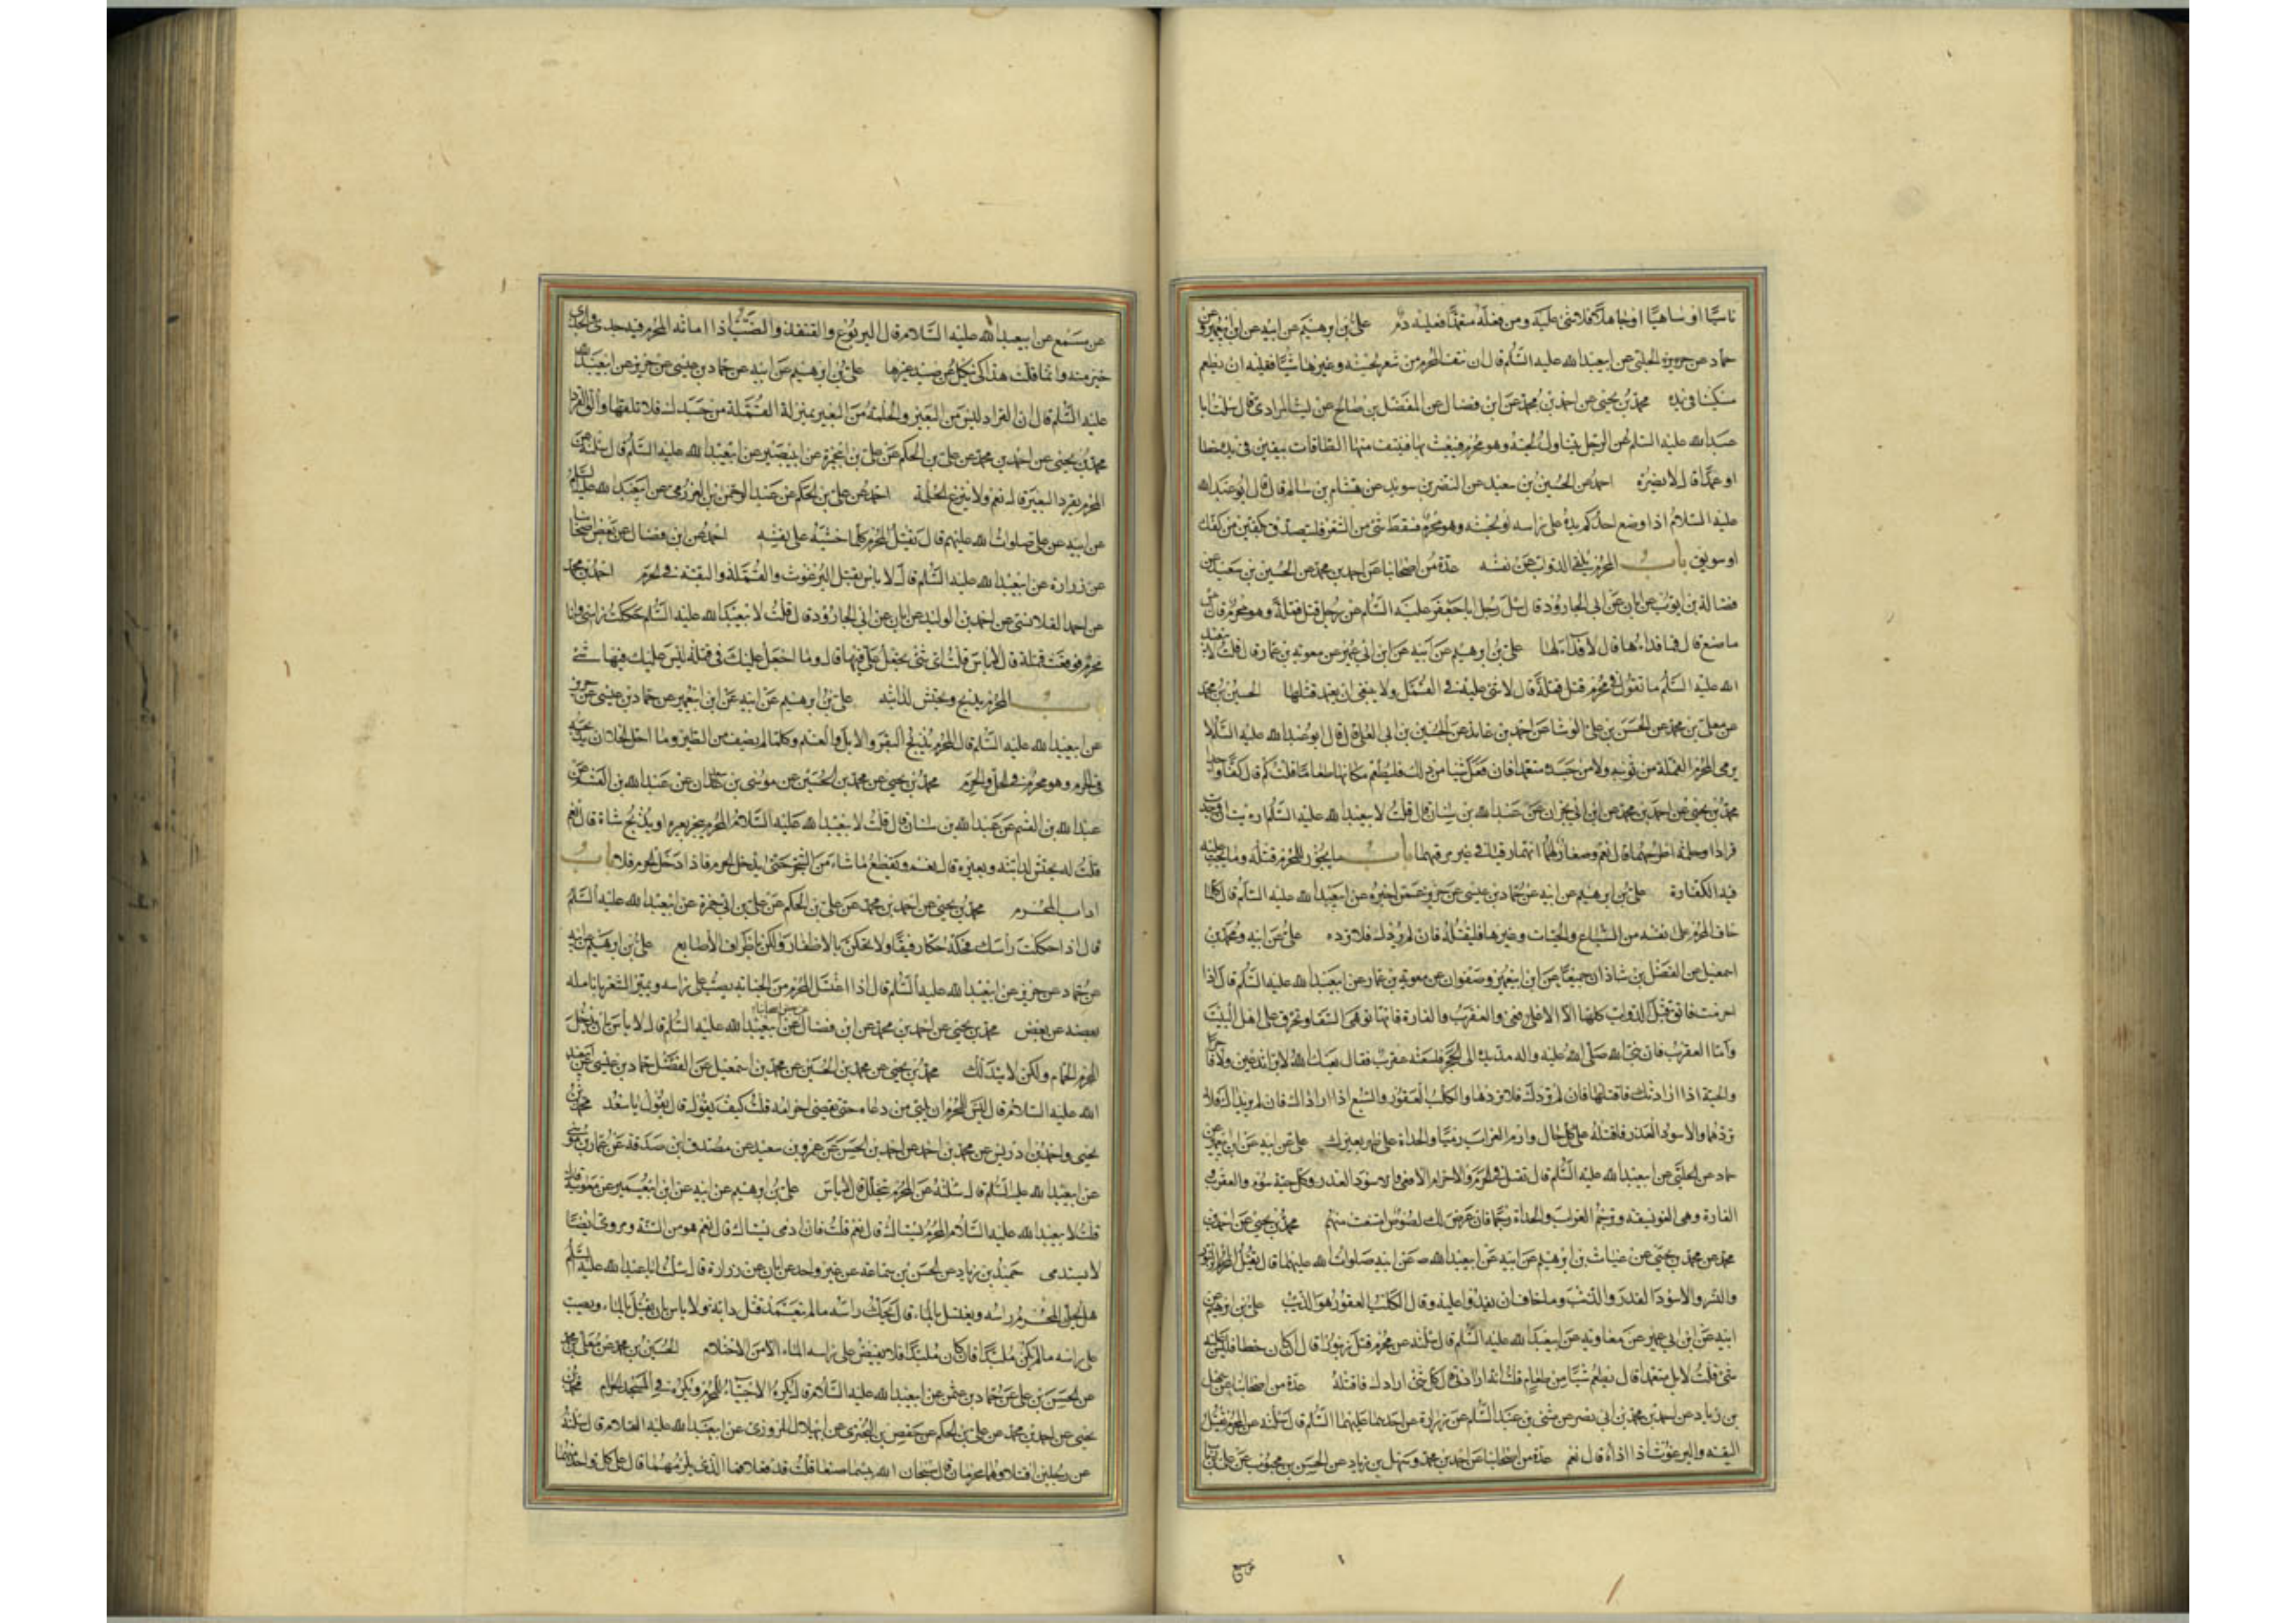 ناسيًا او ساهيًا او جاهلًا فلا شئ عليه ومن فعله متعمدًا فعليه دم على بن ابرهيم عن ابيه عن ابن ابى عمير عن
حماد عن الحلبى عن ابيعبد الله عليه السلم قال ان نتف المحرم من شعر لحيته وغيرها شيئًا فعليه ان يطعم
مسكينا فى يده محمد بن يحيى عن احمد بن محمد عن ابن فضال عن المفضل بن صالح عن ليث المرادى قال سئلت ابا
عبد الله عليه السلم عن الرجل يتناول لحيته وهو محرم فيعبث بها فينتف منها الطاقات يبقين فى يده خطا
او عمدًا قال لا يضره احمد عن الحسين بن سعيد عن النضر بن سويد عن هشام بن سالم قال قال ابو عبد الله
عليه السلام اذا وضع احدكم يده على راسه او لحيته وهو محرم فسقط شئ من الشعر فليتصدق بكفين من كعك
او سويق باب المحرم يلقى الدواب عن نفسه عدة من اصحابنا عن احمد بن محمد عن الحسين بن سعيد عن
فضالة بن ايوب عن ابان عن ابى الجارود قال سئل رجل ابا جعفر عليه السلم عن رجل قتل قملة وهو محرم قال بئس
ما صنع قال فما فداءها قال لا فداء لها على بن ابرهيم عن ابيه عن ابن ابى عمير عن معوية بن عمار قال قلت لابيعبد
الله عليه السلم ما تقول فى محرم قتل قملة قال لا شئ عليه فى القمل ولا ينبغى ان يتعمد قتلها الحسين بن محمد
عن معلى بن محمد عن الحسن بن على الوشا عن احمد بن عائذ عن الحسين بن ابى العلا قال قال ابو عبد الله عليه السلم لا
يرمى المحرم القملة من ثوبه ولا من جسده متعمدا فان فعل شيئا من ذلك فليطعم مكانها طعاما قلت كم قال كفًا واحدا
محمد بن يحيى عن احمد بن محمد عن ابن ابى نجران عن عبد الله بن سنان قال قلت لابيعبد الله عليه السلم ارايت ان وجدت
قرادا او حلمة اطرحهما قال نعم وصغار لهما انهما رقيا فى غير مرقيهما باب ما يجوز للمحرم قتله وما يجب عليه
فيه الكفارة على بن ابرهيم عن ابيه عن حماد بن عيسى عن حريز عمن اخبره عن ابيعبد الله عليه السلم قال كلما
خاف المحرم على نفسه من السباع والحيات وغيرها فليقتله فان لم يردك فلا ترده على عن ابيه ومحمد بن
اسمعيل عن الفضل بن شاذان جميعًا عن ابن ابى عمير وصفوان عن معوية بن عمار عن ابيعبد الله عليه السلم قال اذا
احرمت فاتق قتل الدواب كلها الا الافعى والعقرب والفارة فانها توهى السقا وتحرق على اهل البيت
وامّا العقرب فان نبى الله صلى الله عليه واله مد يده الى الحجر فلسعته عقرب فقال لعنك الله لا برا تدعين ولا فاجرا
والحية اذا ارادتك فاقتلها فان لم تردك فلا تردها والكلب العقور والسبع اذا ارادك فان لم يريداك فلا
تردهما والاسود الغدر فاقتله على كل حال وارم الغراب رميًا والحداة على ظهر بعيرك على عن ابيه عن ابن ابى عمير عن
حماد عن الحلبى عن ابيعبد الله عليه السلم قال تقتل فى الحرم والاحرام الافعى والاسود الغدر وكل حية سوء والعقرب
الفارة وهى الفويسقة وترجم الغراب والحداة رجمًا فان عرض لك لصوص امتنعت منهم محمد بن يحيى عن احمد بن
محمد عن محمد بن يحيى عن غياث بن ابرهيم عن ابيه عن ابيعبد الله عن ابيه صلوات الله عليهما قال يقتل المحرم الزنبور
والنسر والاسود الغدر والذئب وما خاف ان يعدو عليه وقال الكلب العقور هو الذئب على بن ابرهيم عن
ابيه عن ابن ابى عمير عن معاوية عن ابيعبد الله عليه السلم قال سئلته عن محرم قتل زنبورًا قال ان كان خطا فليس عليه
شئ قلت لا بل متعمدا قال يطعم شيئًا من طعام قلت انه ارادنى قال كل شئ ارادك فاقتله عدة من اصحابنا عن سهل
بن زياد عن احمد بن محمد بن ابى نصر عن مثنى بن عبد السلم عن زرارة عن احدهما عليهما السلم قال سئلته عن المحرم يقتل
البقة والبرغوث اذا اذاه قال نعم عدة من اصحابنا عن احمد بن محمد وسهل بن زياد عن الحسن بن محبوب عن على بن رئاب
عن مسمع عن ابيعبد الله عليه السلام قال اليربوع والقنفذ والضب اذا اماته المحرم فيه جدى والجدى
خير منه وانما قلت هذا كى ينكل عن صيد غيرها على بن ابرهيم عن ابيه عن حماد بن عيسى عن حريز عن ابيعبد الله
عليه السلم قال ان القراد ليس من البعير والحلمة من البعير بمنزلة القملة من جسدك فلا تلقها والق القراد
محمد بن يحيى عن احمد بن محمد عن على بن الحكم عن على بن ابى حمزة عن ابى بصير عن ابيعبد الله عليه السلم قال سئلته عن
المحرم يقرد البعير قال نعم ولا ينزع الحلمة احمد عن على بن الحكم عن عبد الرحمن بن العرزمى عن ابيعبد الله عليه السلم
عن ابيه عن على صلوات الله عليهم قال يقتل المحرم كلما خشيه على نفسه احمد عن ابن فضال عن بعض اصحابنا
عن زرارة عن ابيعبد الله عليه السلم قال لا باس بقتل البرغوث والقملة والبقة فى الحرم احمد بن محمد
عن احمد القلانسى عن احمد بن الوليد عن ابان عن ابى الجارود قال قلت لابيعبد الله عليه السلم حككت راسى وانا
محرم فوقعت قملة قال لا باس قلت اى شئ تجعل على فيها قال وما اجعل عليك فى قملة ليس عليك فيها شئ
باب المحرم يذبح ويحتش لدابته على بن ابرهيم عن ابيه عن ابن ابى عمير عن حماد بن عيسى عن حريز
عن ابيعبد الله عليه السلم قال المحرم يذبح البقر والابل والغنم وكلما لم يصف من الطير وما احل للحلال ان يذبحه
فى الحرم وهو محرم فى الحل والحرم محمد بن يحيى عن محمد بن الحسين عن موسى بن سعدان عن عبد الله بن القسم عن
عبد الله بن القسم عن عبد الله بن سنان قال قلت لابيعبد الله عليه السلام المحرم ينحر بعيره او يذبح شاة قال نعم
قلت له يحتش لدابته وبعيره قال نعم ويقطع ما شاء من الشجر حتى يدخل الحرم فاذا دخل الحرم فلا باب
اداب المحرم محمد بن يحيى عن احمد بن محمد عن على بن الحكم عن على بن ابى حمزة عن ابيعبد الله عليه السلم
قال اذا حككت راسك فحكه حكا رفيقًا ولا تحكن بالاظفار ولكن باطراف الاصابع على بن ابرهيم عن ابيه
عن حماد عن حريز عن ابيعبد الله عليه السلم قال اذا اغتسل المحرم من الجنابة يصب على راسه ويميز الشعر بانامله
بعضه عن بعض محمد بن يحيى عن احمد بن محمد عن ابن فضال عن بعض اصحابنا عن ابيعبد الله عليه السلم قال لا باس بان يدخل
المحرم الحمام ولكن لا يتدلك محمد بن يحيى عن محمد بن الحسين عن محمد بن اسمعيل عن الفضل حماد بن عيسى عن ابيعبد
الله عليه السلام قال ليس للمحرم ان يلبى من دعاه حتى يقضى احرامه قلت كيف يقول قال يقول يا سعد محمد بن
يحيى واحمد بن ادريس عن محمد بن احمد عن احمد بن الحسن عن عمرو بن سعيد عن مصدق بن صدقة عن عمار بن موسى
عن ابيعبد الله عليه السلم قال سئلته عن المحرم يتخلل قال لا باس على بن ابرهيم عن ابيه عن ابن ابى عمير عن معوية قال
قلت لابيعبد الله عليه السلام المحرم يستاك قال نعم قلت فان ادمى يستاك قال نعم هو من السنة وروى ايضًا
لا يستدمى حميد بن زياد عن الحسن بن سماعة عن غير واحد عن ابان عن زرارة قال سئلت ابا عبد الله عليه السلم
هل يحك المحرم راسه ويغتسل بالماء قال يحك راسه ما لم يتعمد قتل دابة ولا باس بان يغتسل بالماء ويصب
على راسه ما لم يكن ملبدًا فان كان ملبدًا فلا يفيض على راسه الماء الا من الاحتلام الحسين بن محمد عن معلى بن محمد
عن الحسن بن على عن حماد بن عثمن عن ابيعبد الله عليه السلام قال يكره الاحتباء للمحرم ويكره فى المسجد الحرام محمد بن
يحيى عن احمد بن محمد عن على بن الحكم عن حفص بن البخترى عن ابى هلال الرازى عن ابيعبد الله عليه السلام قال سئلته
عن رجلين اقتتلا وهما محرمان قال سبحان الله بئسما صنعا قلت قد فعلا فما الذى يلزمهما قال على كل واحد منهما